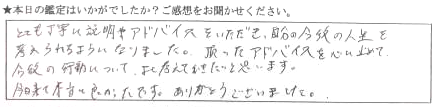 ★本日の鑑定はいかがでしたか？ご感想をお聞かせください。
とても丁寧に説明やアドバイスをいただき、自分の今後の人生を
考えられるようになりました。頂いたアドバイスを心に止めて、
今後の行動について、よく考えておきたいと思います。
今日来て本当に良かったです。ありがとうございました。